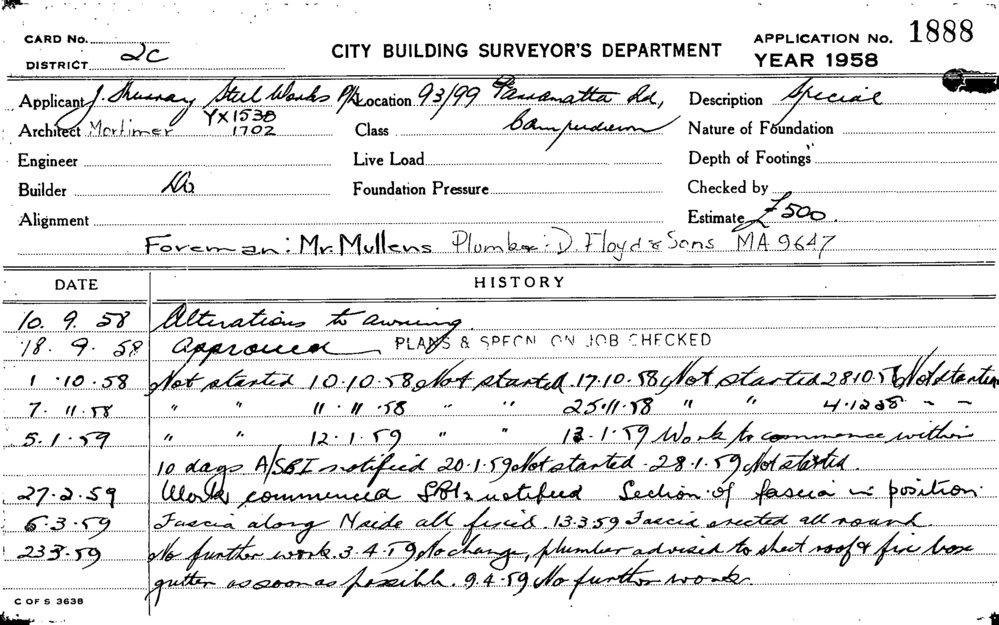 CARD No.
DISTRICT 2C
CITY BUILDING SURVEYOR'S DEPARTMENT
APPLICATION No. 1888
YEAR 1958
Applicant J. Murray Steel Works P/L Location 93/99 Parramatta Rd, Description Special
Architect Mortimer YX1538 1702 Class Camperdown Nature of Foundation
Engineer Live Load Depth of Footings
Builder Do Foundation Pressure Checked by
Alignment Estimate £500.
Foreman: Mr. Mullens Plumber: D. Floyd & Sons MA 9647
DATE HISTORY
10. 9. 58 Alterations to awning
18. 9. 58 Approved PLANS & SPECN ON JOB CHECKED
1.10.58 Not started 10.10.58 Not started. 17.10.58 Not started 28.10.58 Not started
7.11.58 " " 11.11.58 " " 25.11.58 " " 4.12.58 - -
5.1.59 " " 12.1.59 " " 13.1.59 Work to commence within
10 days A/SBI notified 20.1.59 Not started. 28.1.59 Not started.
27.2.59 Work commenced notified Section of fascia in position
6.3.59 Fascia along N side all fixed. 13.3.59 Fascia erected all round
23.3.59 No further work. 3.4.59 No change, plumber advised to sheet roof & fix box
gutter as soon as possible. 9.4.59 No further work
C OF S 3638